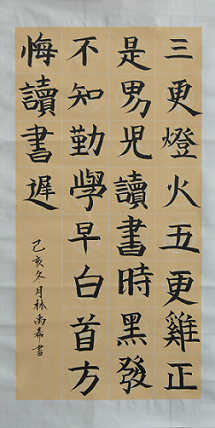 三更燈火五更雞正
是男児讀書時黑發
不知勤學早白首方
悔讀書遲
己亥冬月林禹希書